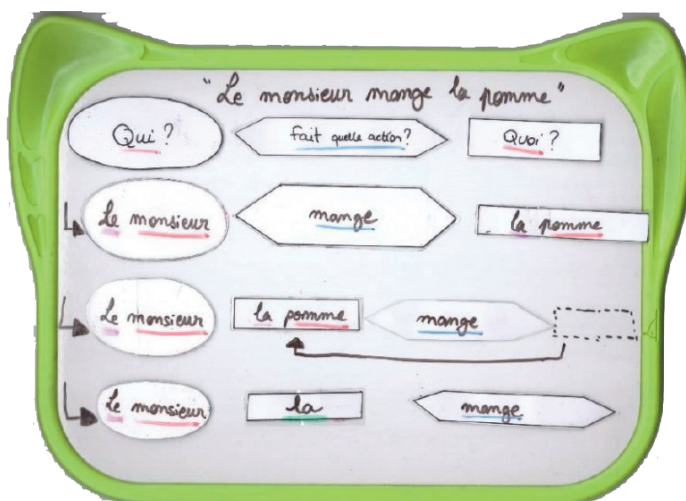 "Le monsieur mange la pomme"
Qui ? fait quelle action ? Quoi ?
Le monsieur mange la pomme
Le monsieur la pomme mange
Le monsieur la mange